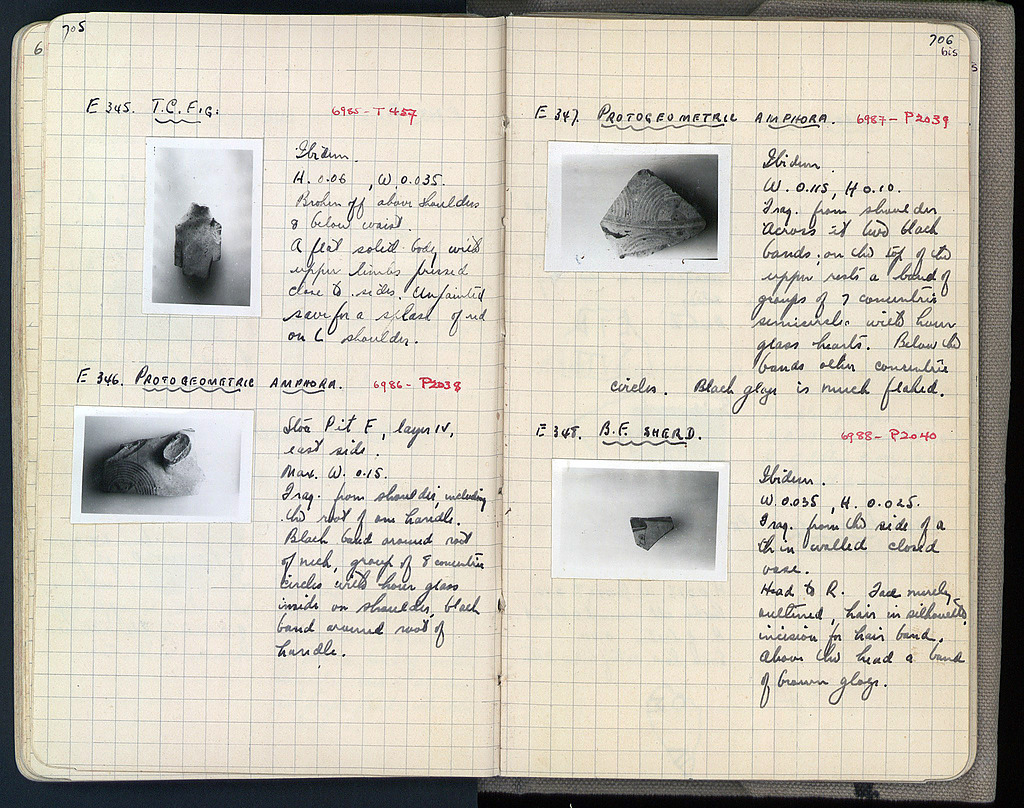 705
6
E 345. T.C. FIG:
6985 - T 457
Ibidem.
H. 0.06 , W. 0.035.
Broken off above shoulders
& below waist.
A flat solid body, with
upper limbs pressed
close to sides. Unpainted
save for a splash of red
on L shoulder.
E 346. PROTOGEOMETRIC AMPHORA.
6986 - P2038
Stoa Pit F, layer IV,
east side.
Max. W. 0.15.
Frag. from shoulder, including
the root of one handle.
Black band around root
of neck, group of 8 concentric
circles with hour glass
inside on shoulder, black
band around root of
handle.
706
bis
S
E 347. PROTOGEOMETRIC AMPHORA.
6987 - P2039
Ibidem.
W. 0.115, H 0.10.
Frag. from shoulder
Across it two black
bands; on the top of the
upper rests a band of
groups of 7 concentric
semicircles with hour
glass hearts. Below the
bands other concentric
circles. Black glaze is much flaked.
E 348. B.F. SHERD.
6988 - P2040
Ibidem.
W. 0.035 , H. 0.025.
Frag. from the side of a
thin walled closed
vase.
Head to R. Face merely
outlined, hair in silhouette,
incision for hair band.
Above the head a band
of brown glaze.